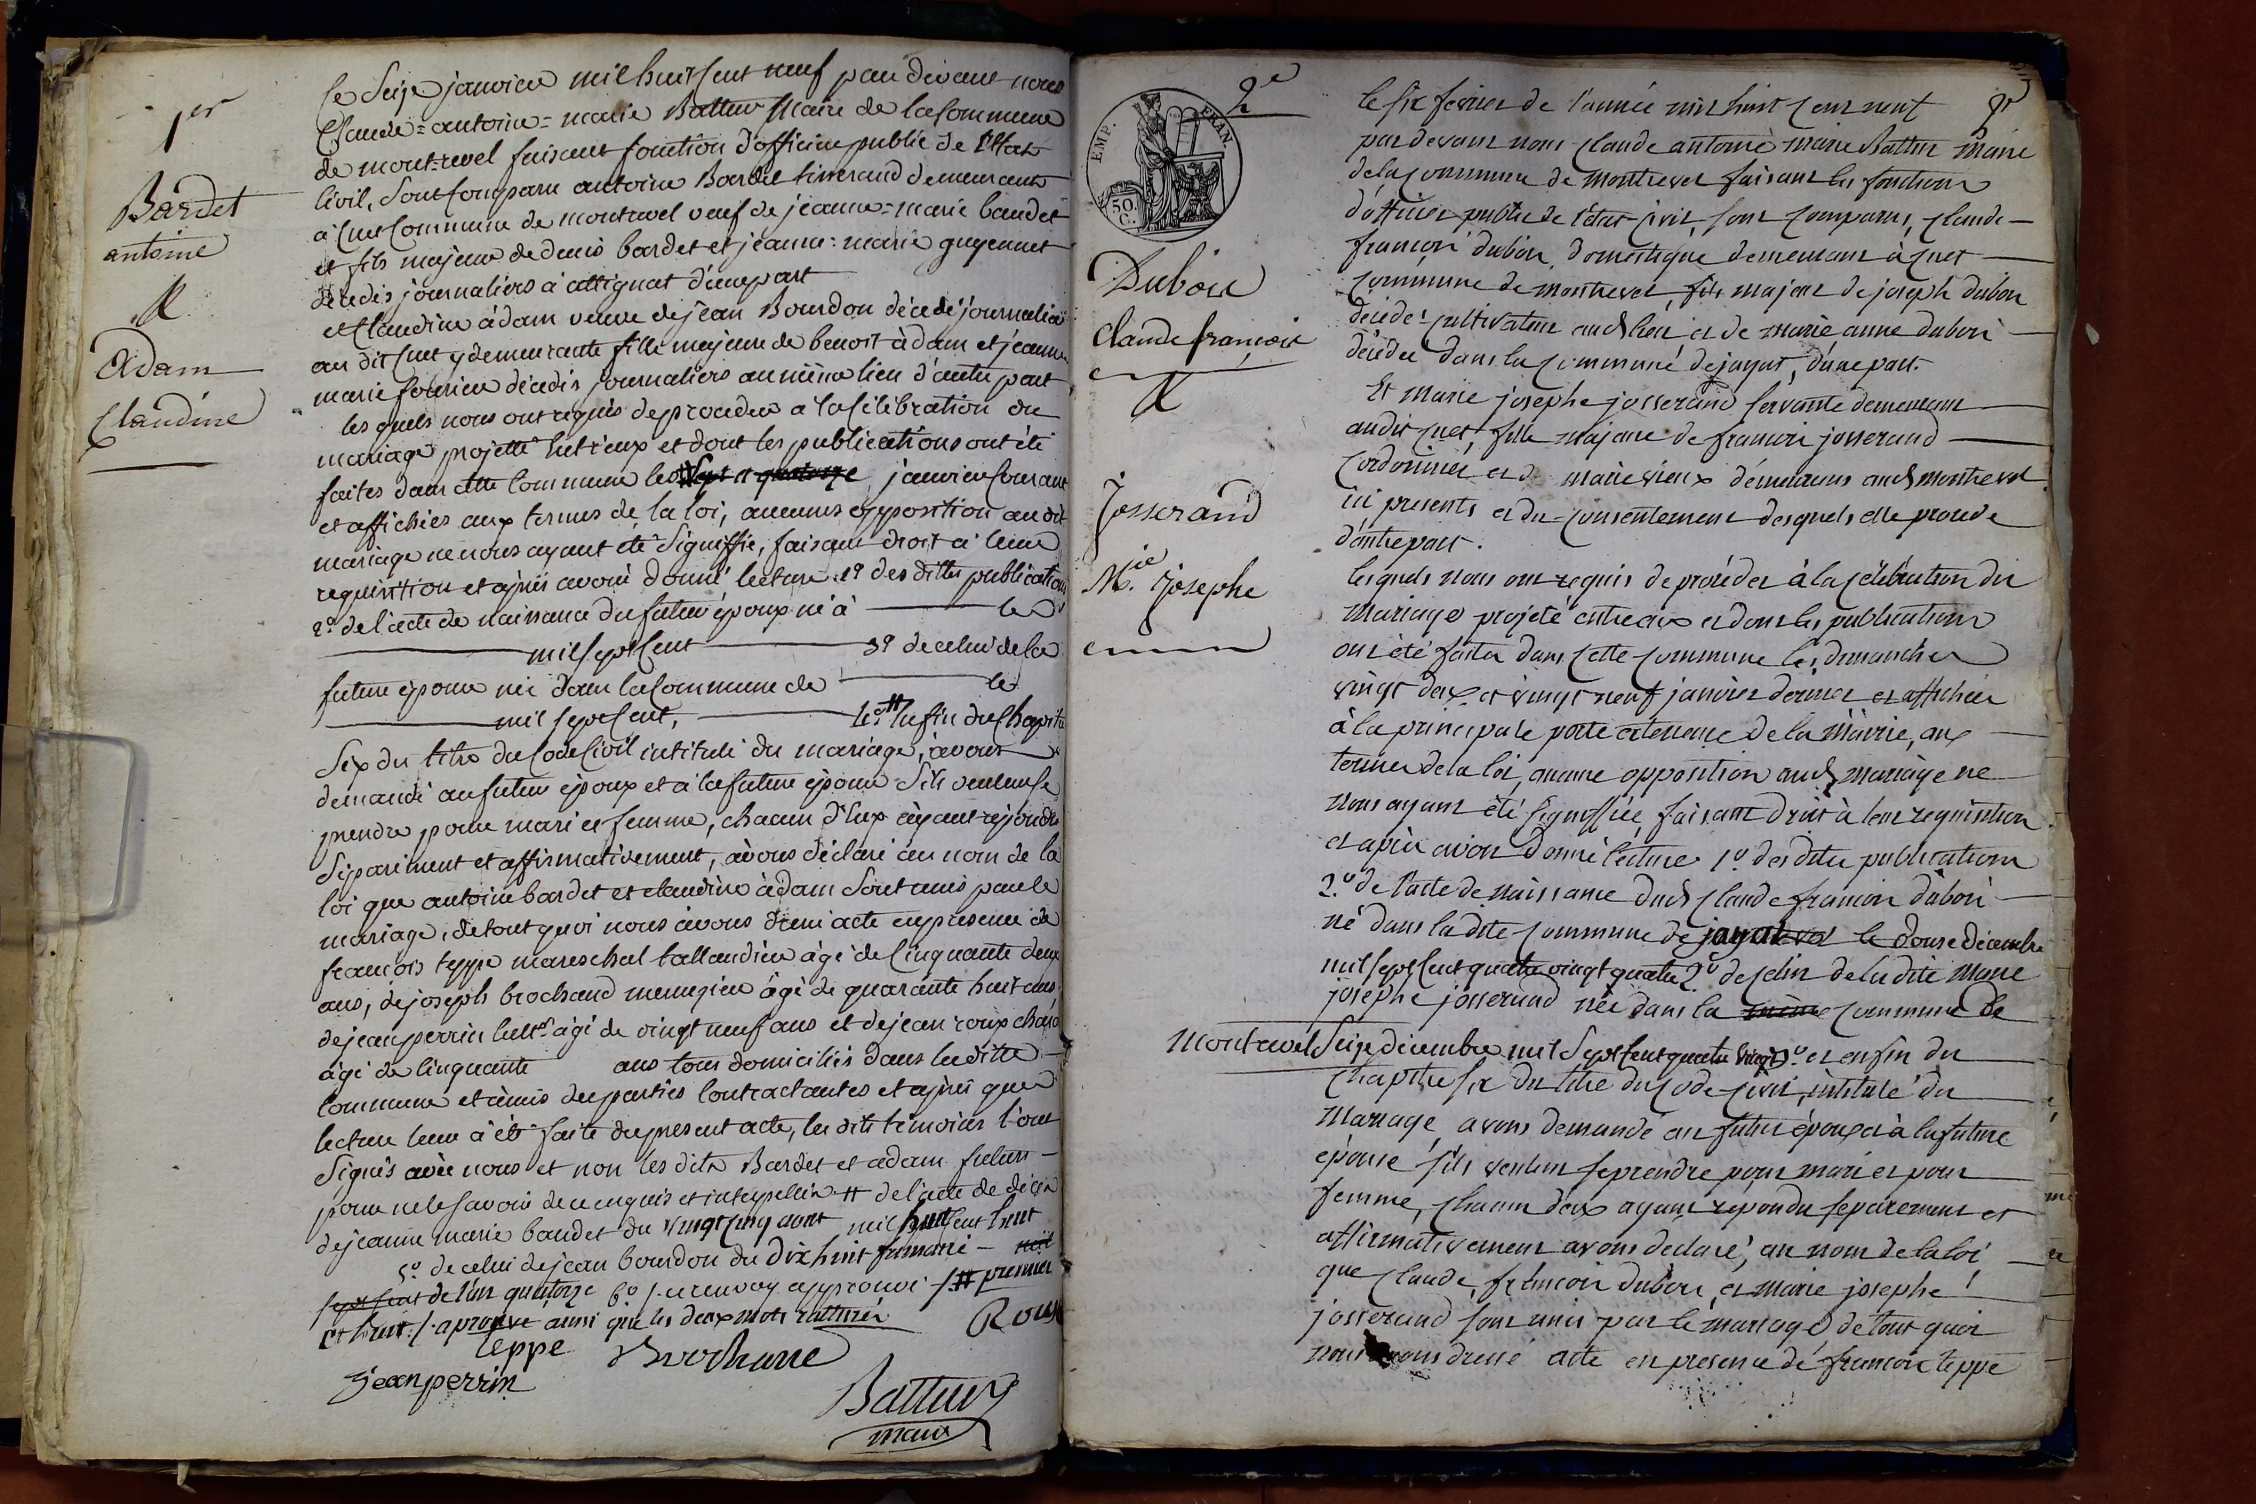 1er
Bardet
antoine
&
Adam
Claudine
le Seize janvier mil huit Cent neuf par devant nous
Claude=antoine=marie Battur Maire de la Commune
de mont=revel faisant fonction d'officier public de l'Etat
Civil, Sont Comparu antoine Bardet tisserand demeurant
a Cuet Commune de montrevel veuf de jeanne=marie baudet
et fils majeur de denis bardet et jeanne=marie guyennet
décédés journaliers à attignat d'une part
et Claudine adam veuve de jean Bourdon décédé journalier
au dit Cuet y demeurante fille majeure de benoit adam et jeanne
marie fournier décédés journaliers au même lieu d'autre part
les quels nous ont requis de proceder a la Célébration du
mariage projetté entr'eux et dont les publications ont été
faites dans cette Commune les Sept et quatorze janvier Courant
et affichées aux termes de la loi, aucunes opposition au dit
mariage ne nous ayant été Signiffié, faisant droit a leur
requisition et après avoir donné lecture 1° des dittes publications
2° de l'acte de naissance du futur époux né à le
mil Sept Cent 3° de celui de la
future épouse née dans la Commune de le
mil Sept Cent, 4° # enfin du Chapitre
Six du titre du Code Civil intitulé du mariage, avons
demandé au futur époux et a la future épouse S'ils veulent Se
prendre pour mari et femme, chacun d'Eux ayant répondu
Séparément et affirmativement, avons déclaré au nom de la
loi que antoine bardet et claudine adam Sont unis par le
mariage, de tout quoi nous avons dressé acte en présence de
françois teppe mareschal tallandier âgé de Cinquante deux
ans, de joseph brochand menuzier âgé de quarante huit ans
de jean perrin cultr âgé de vingt neuf ans et de jean roux
âgé de Cinquante ans tous domiciliés dans la ditte
Commune et amis des parties Contractantes et après que
lecture leur à été faite du present acte, les dits témoins l'ont
Signés avec nous et non les dits Bardet et adam futurs
pour ne le Savoir de ce enquis et interpellés # de l'acte de décès
de jeanne marie baudet du vingt cinq aout mil huit Cent huit
5° de celui de jean bourdon du dix huit frimaire mil
Sept Cent de l'an quatorze 6° renvoy approuvé # premier
et huit aprouvé ainsi que les deux mots ratturés
teppe Brochand Roux
jean perrin
Battur
maire
2e
EMP. FRAN.
50 C.
Dubois
Claude françois
&
Josserand
Mie josephe
le six fevrier de l'année mil huit cent neuf
par devant nous Claude antoine marie Battur maire
de la commune de montrevel faisant les fonctions
d'officier public de l'état civil, sont comparus, claude
françois dubois domestique demeurant à Cuet
commune de montrevel, fils majeur de joseph dubois
décédé cultivateur aud. lieu et de marie anne dubois
décédée dans la commune de jayat, d'une part.
Et marie josephe josserand servante demeurant
audit Cuet, fille majeure de françois josserand
cordonnier et de marie vieux demeurans aud. montrevel
ici presents et du consentement desquels elle procede
d'autre part.
lesquels nous ont requis de procéder à la célébration du
mariage projeté entre eux et dont les publications
ont été faites dans cette commune les dimanches
vingt deux et vingt neuf janvier dernier et affichées
à la principale porte de la mairie, aux
termes de la loi, aucune opposition aud. mariage ne
nous ayant été signiffiée, faisant droit à leur requisition
et après avoir donné lecture 1° des dites publications
2° de l'acte de naissance dud. claude françois dubois
né dans la dite commune de jayat le douze décembre
mil Sept Cent quatre vingt quatre 2° de celui de la dite marie
josephe josserand née dans la même commune de
montrevel Seize décembre mil Sept Cent quatre vingt 3° et enfin du
chapitre six du titre du code civil, intitulé du
mariage, avons demandé au futur époux et à la future
épouse s'ils veulent se prendre pour mari et pour
femme, chacun deux ayant répondu separement et
affirmativement avons déclaré, au nom de la loi
que claude françois dubois et marie josephe
josserand sont unis par le mariage, de tout quoi
nous avons dressé acte en presence de françois teppe